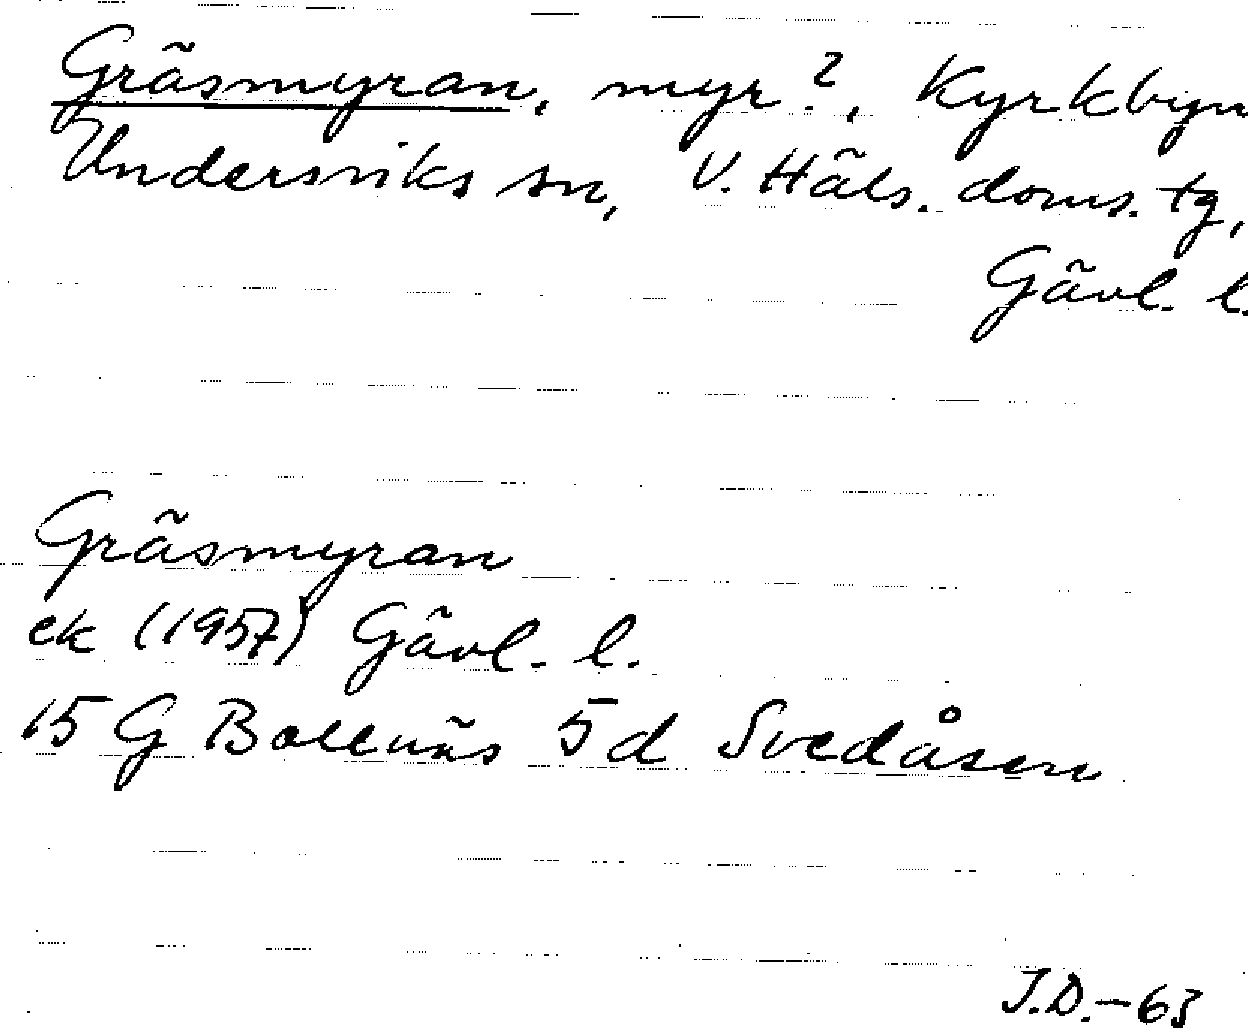 Gräsmyran, myr?, Kyrkbyn
Undersviks sn, V. Häls. doms. tg,
Gävl. l.
Gräsmyran
ek (1957) Gävl. l.
15 G Bollnäs 5 d Svedåsen
J.D.-63